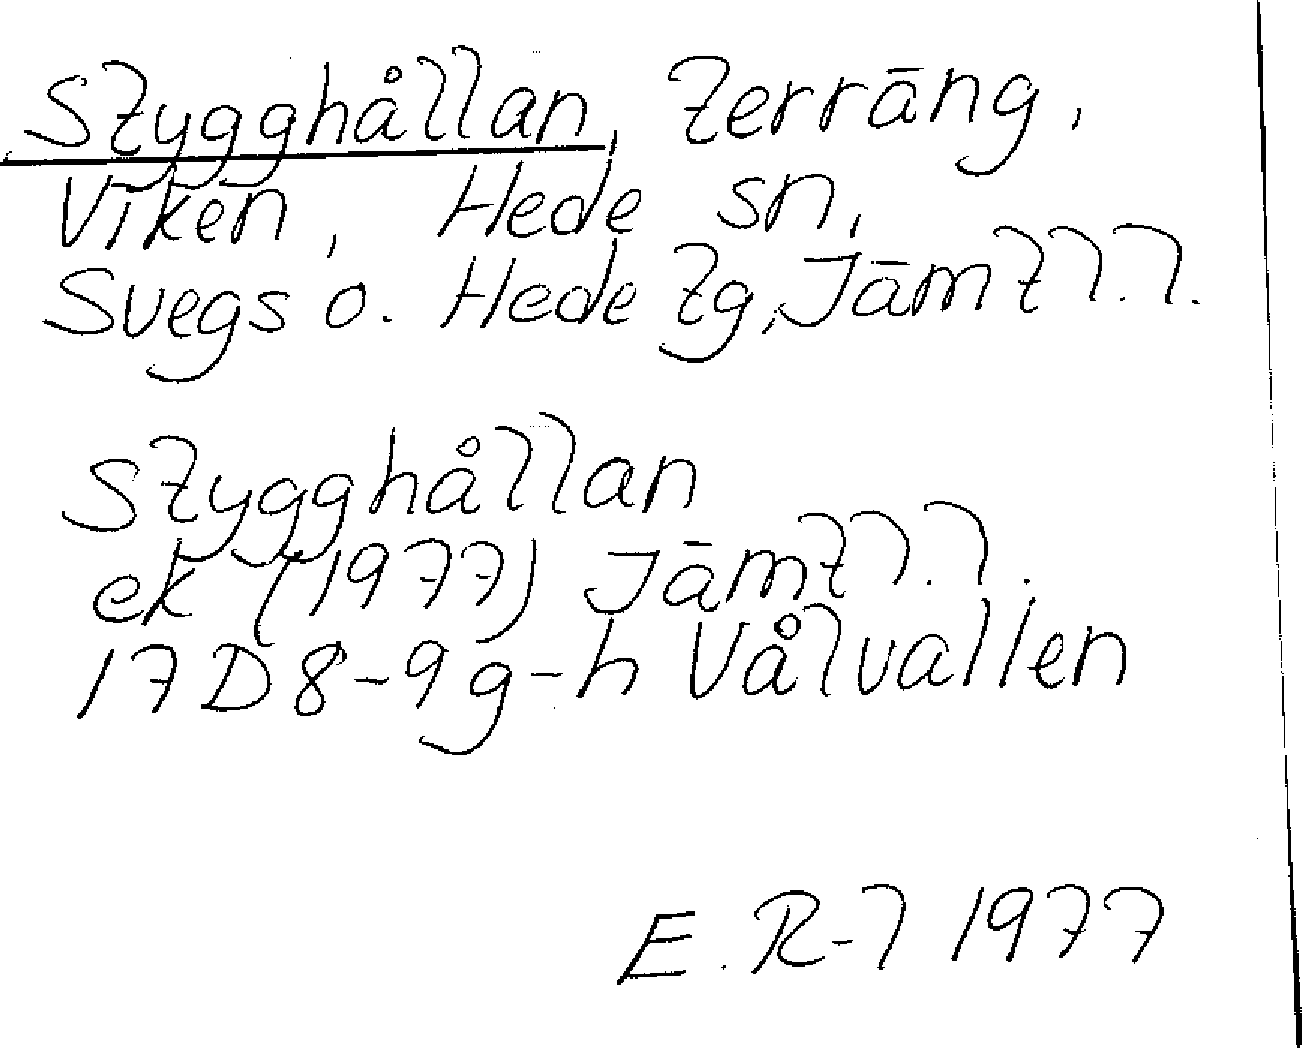 Stygghållan, Terräng,
Viken, Hede sn,
Svegs o. Hede tg, Jämtl. l.
Stygghållan
ek (1977) Jämtl. l.
17D 8-9 g-h Vålvallen
E. R-l 1977